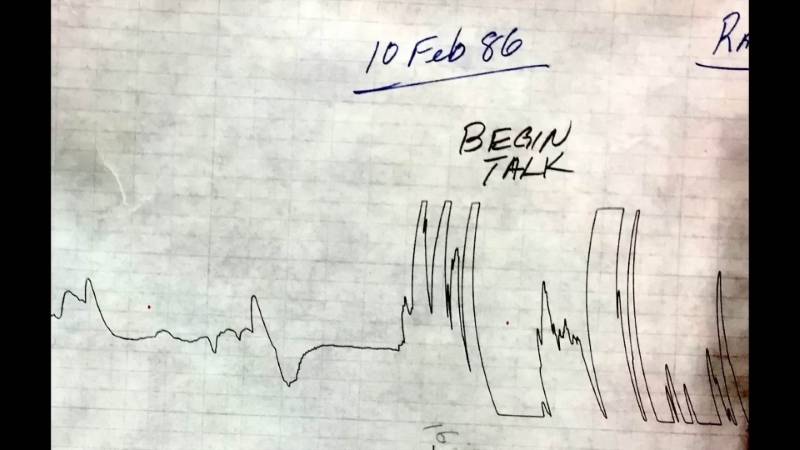 10 Feb 86
BEGIN
TALK